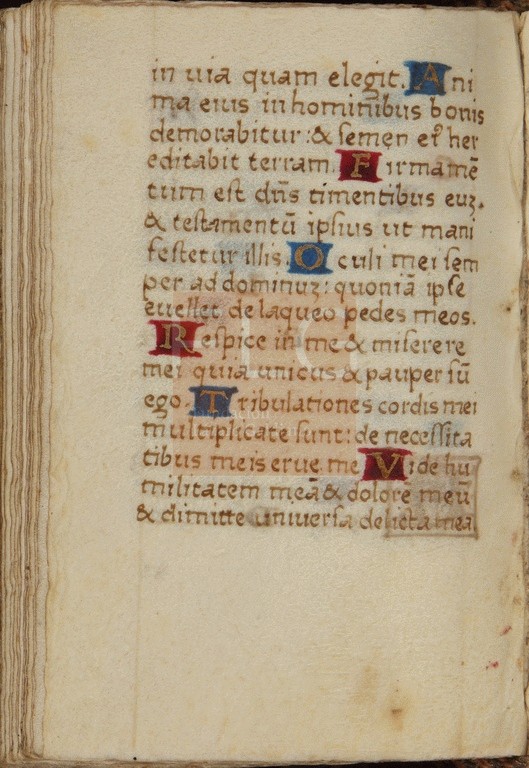 in uia quam elegit. Ani
ma eius in hominibus bonis
demorabitur: & semen eiꝰ her
editabit terram. Firmamē
tum est dn̄s timentibus euꝫ.
& testamentū ipsius ut mani
festetur illis. Oculi mei sem
per ad dominuꝫ: quoniā ipse
euellet de laqueo pedes meos.
Respice in me & miserere
mei quia unicus & pauper sū
ego. Tribulationes cordis mei
multiplicate sunt: de necessita
tibus meis erue me. Vide hu
militatem meā & dolorē meū
& dimitte uniuersa delicta mea